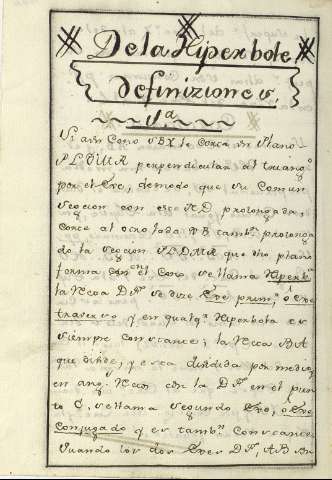 De la Hiperbole
Definiziones
1.ª
Si à un Cono SBX le corca un Plano
perpendicular al triang.º
por el Exe, demodo que su Comun
seczion con esse prolongada,
corte al otro lado SB tamb.n prolonga
do la seczion que dho plano
forma en el Cono se llama Hiperb.e
la Recta se dize Exe prim.º, ò Exe
traverso y en qualq.ª Hiperbola es
siempre constante; la Recta BA
que divide, y esta dividida por medio,
en ang.s Rectos con la en el pun
to C, se llama segundo Exe, ò Exe
Conjugado y es tamb.n Constante
Quando los dos Exes AB